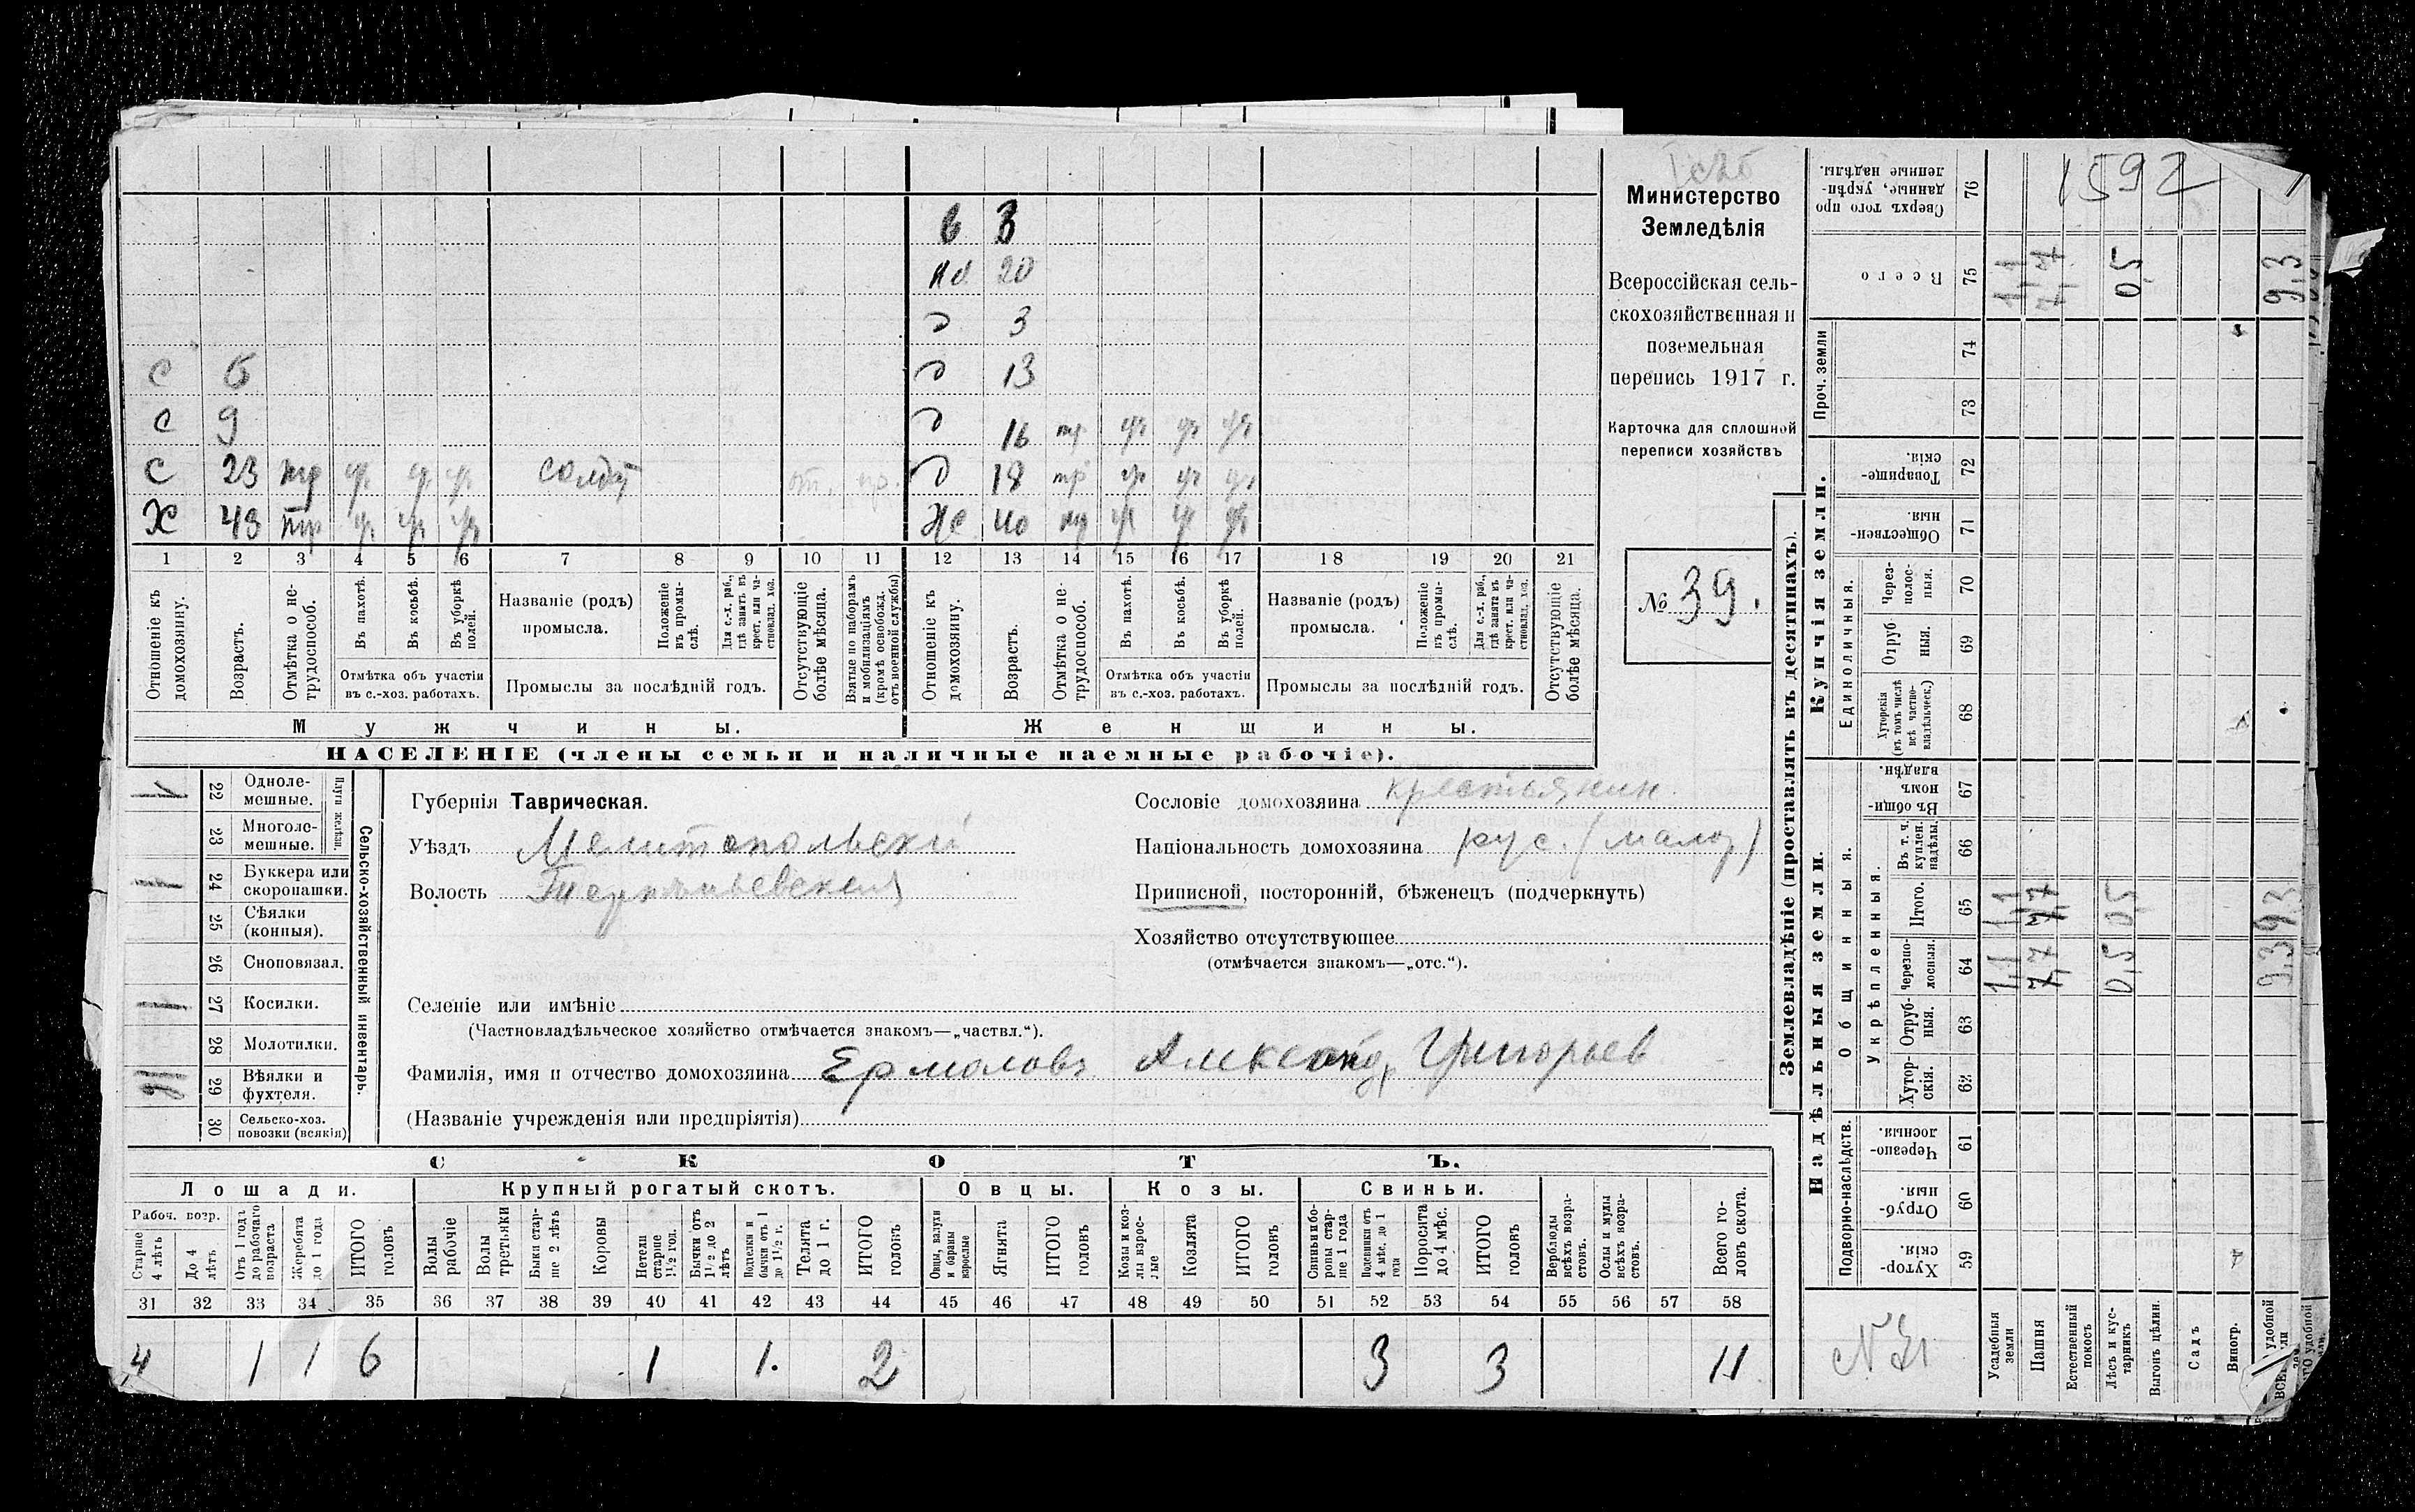 1592
Министерство
Земледѣлія
Всероссійская сель-
скохозяйственная и
поземельная
перепись 1917 г.
Карточка для сплошной
переписи хозяйствъ
№ 39.
в 3
20
д 3
с 6 д 13
с 9 д 16
с 23 солдат д 18
Х 43 Же 40
1 2 3 4 5 6 7 8 9 10 11 12 13 14 15 16 17 18 19 20 21
Отношеніе къ домохозяину.
Возрастъ.
Отмѣтка о не-трудоспособ.
Въ пахотѣ.
Въ косьбѣ.
Въ уборкѣ полей.
Отмѣтка объ участіи
въ с.-хоз. работахъ.
Названіе (родъ)
промысла.
Положеніе въ промы-слѣ.
Для с.-х. раб., гдѣ занятъ въ крест. или ча-стновлад. хоз.
Промыслы за послѣдній годъ.
Отсутствующіе болѣе мѣсяца.
Взятые по наборамъ и мобилизаціямъ (кромѣ освобожд. отъ военной службы)
Отношеніе къ домохозяину.
Возрастъ.
Отмѣтка о не-трудоспособ.
Въ пахотѣ.
Въ косьбѣ.
Въ уборкѣ полей.
Отмѣтка объ участіи
въ с.-хоз. работахъ.
Названіе (родъ)
промысла.
Положеніе въ промы-слѣ.
Для с.-х. раб., гдѣ занята въ крест. или ча-стновлад. хоз.
Промыслы за послѣдній годъ.
Отсутствующіе болѣе мѣсяца.
Мужчины. Женщины.
НАСЕЛЕНІЕ (члены семьи и наличные наемные рабочіе).
Сельско-хозяйственный инвентарь.
Плуги желѣзн.
1 22 Одноле-мешные.
23 Многоле-мешные.
1 24 Буккера или скоропашки.
25 Сѣялки (конныя).
26 Сноповязал.
1 27 Косилки.
28 Молотилки.
29 Вѣялки и фухтеля.
30 Сельско-хоз. повозки (всякія)
Губернія Таврическая.
Уѣздъ Мелитопольскій
Волость
Сословіе домохозяина крестьянин.
Національность домохозяина рус. (малор)
Приписной, посторонній, бѣженецъ (подчеркнуть)
Хозяйство отсутствующее
(отмѣчается знакомъ—„отс.“).
Селеніе или имѣніе
(Частновладѣльческое хозяйство отмѣчается знакомъ—„частвл.“).
Фамилія, имя и отчество домохозяина Ермоловъ Александ Григорьев
(Названіе учрежденія или предпріятія)
СКОТЪ.
Лошади. Крупный рогатый скотъ. Овцы. Козы. Свиньи.
Рабоч. возр.
Старше 4 лѣтъ
До 4 лѣтъ
Отъ 1 года до рабочаго возраста
Жеребята до 1 года
ИТОГО головъ
Волы рабочіе
Волы третьяки
Быки стар-ше 2 лѣтъ
Коровы
Нетели старше 1½ год.
Бычки отъ 1½ до 2 лѣтъ
Подтелки и бычки отъ 1 до 1½ г.
Телята до 1 г.
ИТОГО головъ
Овцы, валухи и бараны взрослые
Ягнята
ИТОГО головъ
Козы и коз-лы взрос-лые
Козлята
ИТОГО головъ
Свиньи и бо-ровы стар-ше 1 года
Подсвинки отъ 4 мѣс. до 1 года
Поросята до 4 мѣс.
ИТОГО головъ
Верблюды всѣхъ возра-стовъ.
Ослы и мулы всѣхъ возра-стовъ.
Всего го-ловъ скота.
31 32 33 34 35 36 37 38 39 40 41 42 43 44 45 46 47 48 49 50 51 52 53 54 55 56 57 58
4 1 1 6 1 1. 2 3 3 11
Землевладѣніе (проставлять въ десятинахъ).
Купчія земли.
Надѣльныя земли.
Сверхъ того про данные, укрѣп-ленные надѣлы. 76
Всего 75 1,1 7,7 0,5 9,3
Проч. земли 74
73
Товарище-скія. 72
Обществен-ныя. 71
Единоличныя.
Через-полос-ныя. 70
Отруб-ныя. 69
Хуторскія (въ томъ числѣ всѣ частно-владѣльческ.) 68
Общинныя.
Въ общин-номъ владѣн. 67
Укрѣпленныя.
Въ т. ч. куплен. надѣлы. 66
Итого. 65 1,1 7,7 0,5 9,3
Черезпо-лосныя. 64 1,1 7,7 0,5 9,3
Отруб-ныя. 63
Хутор-скія. 62
Подворно-наслѣдств.
Черезпо-лосныя. 61
Отруб-ныя. 60
Хутор-скія. 59
Усадебныя земли
Пашня
Естественный покосъ
Лѣсъ и кус-тарникъ
Выгонъ цѣлин.
Садъ
Виногр.
удобной